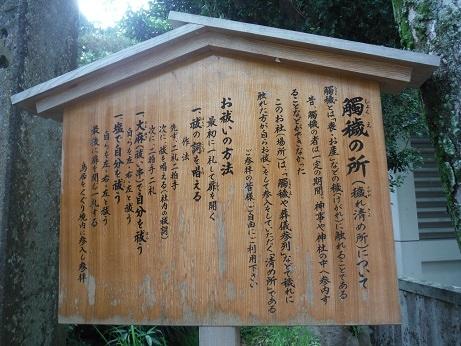 觸穢の所（穢れ清め所）について
觸穢とは、「喪・お産」などの穢（けがれ）に触れることである
昔、觸穢の者は一定の期間、神事や神社の中へ参内す
ることなどができなかった
このお社（場所）は、「觸穢や葬儀参列」などで穢れに
触れた方が「自らお祓い」をして参入をしていただく「清め所」である
ご参拝の皆様、ご自由にご利用下さい
お祓いの方法
最初に一礼して扉を開く
一、祓の詞を唱える
作法
先ず二礼二拍手
次に祓を唱える（社内の祓詞）
次に二拍手一礼
一、大麻祓い串で自分を祓う
自らを左・右・左と祓う
一、塩で自分を祓う
自らを左・右・左と祓う
最後に扉を閉め一礼する
鳥居をくぐり境内に参入し参拝